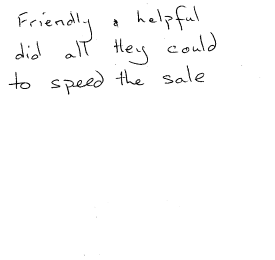 Friendly & helpful
did all they could
to speed the sale